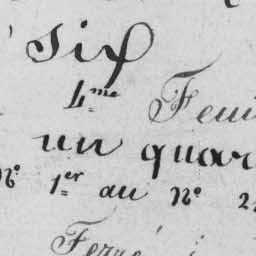 six
4.me Feui
un quar
No 1.er au No 2
Ferré